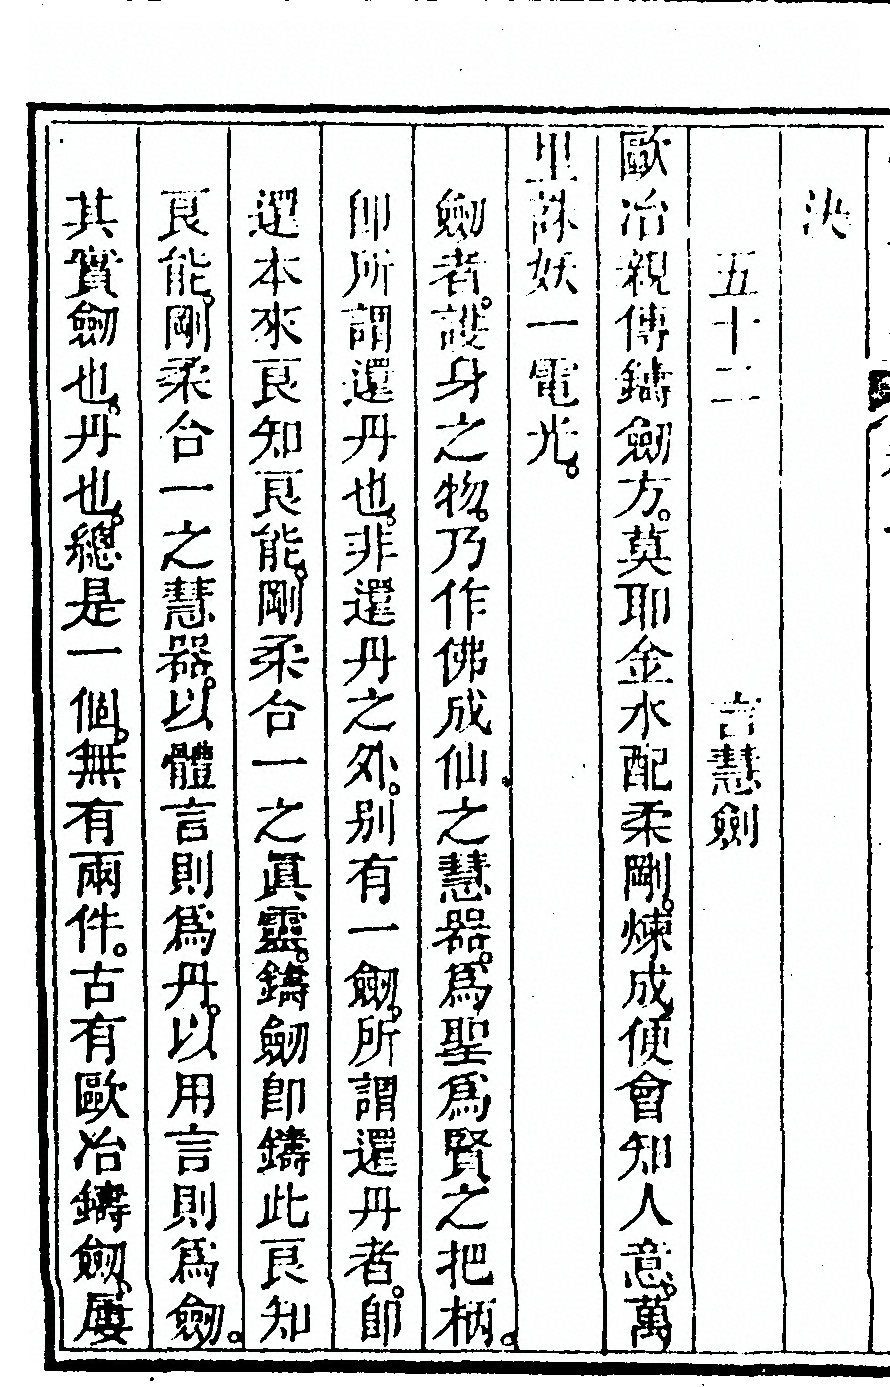 決
五十二　言慧劍
歐冶親傳鑄劒方。莫耶金水配柔剛。煉成便會知人意。萬
里誅妖一電光。
劒者。護身之物。乃作佛成仙之慧器。爲聖爲賢之把柄。
即所謂還丹也。非還丹之外。別有一劒。所謂還丹者。即
還本來良知良能。剛柔合一之眞靈。鑄劒即鑄此良知
良能。剛柔合一之慧器。以體言則爲丹。以用言則爲劒。
其實劒也。丹也。總是一個。無有兩件。古有歐冶鑄劒。屢